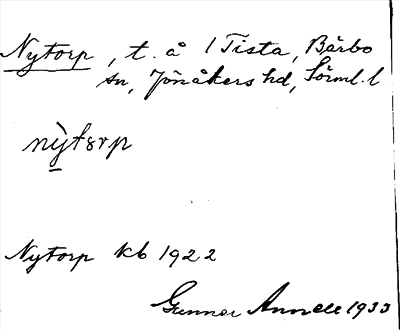 Nytorp, t. å 1 Tista, Bärbo
sn, Jönåkers hd, Sörml. l
nỳtorp
Nytorp kb 1922
Gunnar Annell 1933